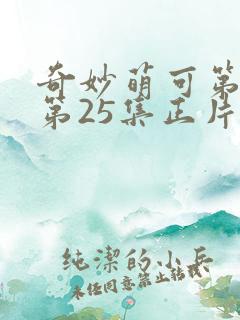 奇妙萌可第
第25集正片
纯潔的小兵
未经同意禁止转载